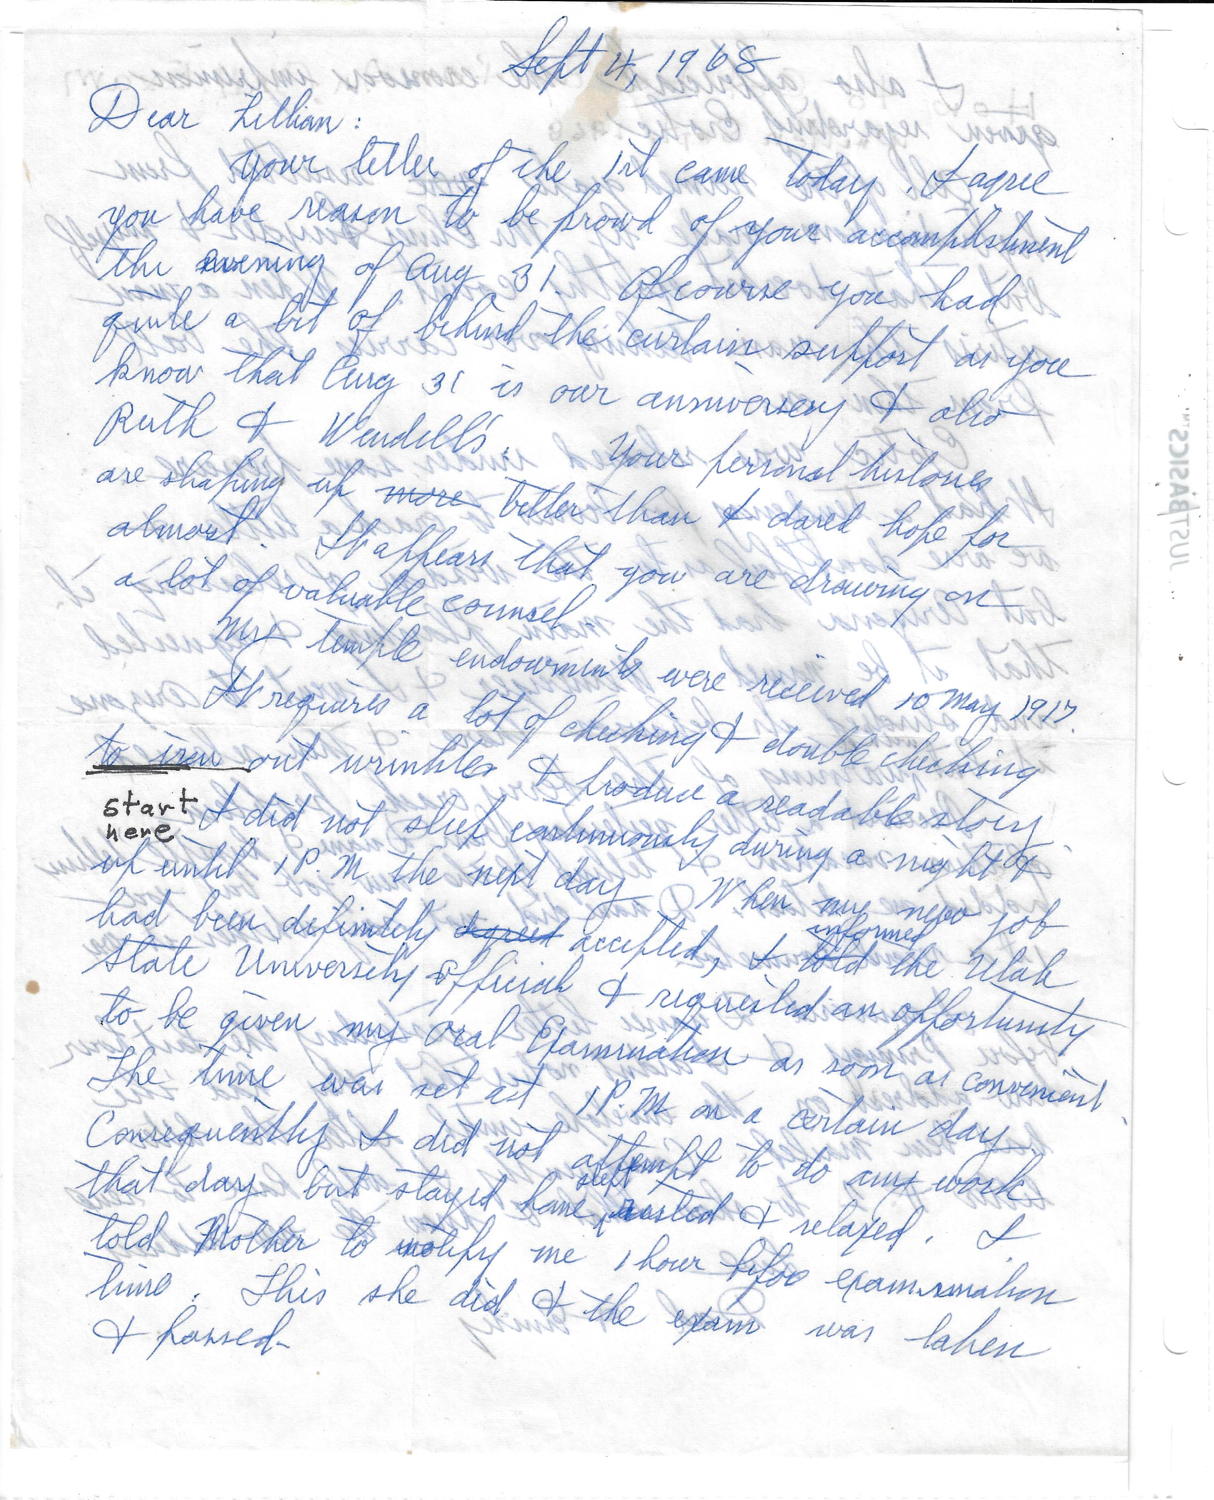 Sept 4, 1968
Dear Lillian:
Your letter of the 1st came today. I agree
you have reason to be proud of your accomplishment
the evening of Aug 31. Of course you had
quite a bit of behind the curtain support as you
know that Aug 31 is our anniversery & also
Ruth & Wendell's. Your personal histories
are shaping up more better than I dared hope for
almost. It appears that you are drawing on
a lot of valuable counsel
My temple endowments were received 10 May 1917.
It requires a lot of checking & double checking
to iron out wrinkles & produce a readable story
start
here
I did not sleep continuously during a night &
up until 1 P.M. the next day. When my new job
had been definitely accepted, I told informed the Utah
State University officials & requested an opportunity
to be given my oral Examination as soon as convenient.
The time was set at 1 P.M on a certain day.
Consequently I did not attempt to do any work
that day but stayed home, slept rested & relaxed. I
told Mother to notify me 1 hour before examination
time. This she did & the exam was taken
& passed-
JUSTBASICS™